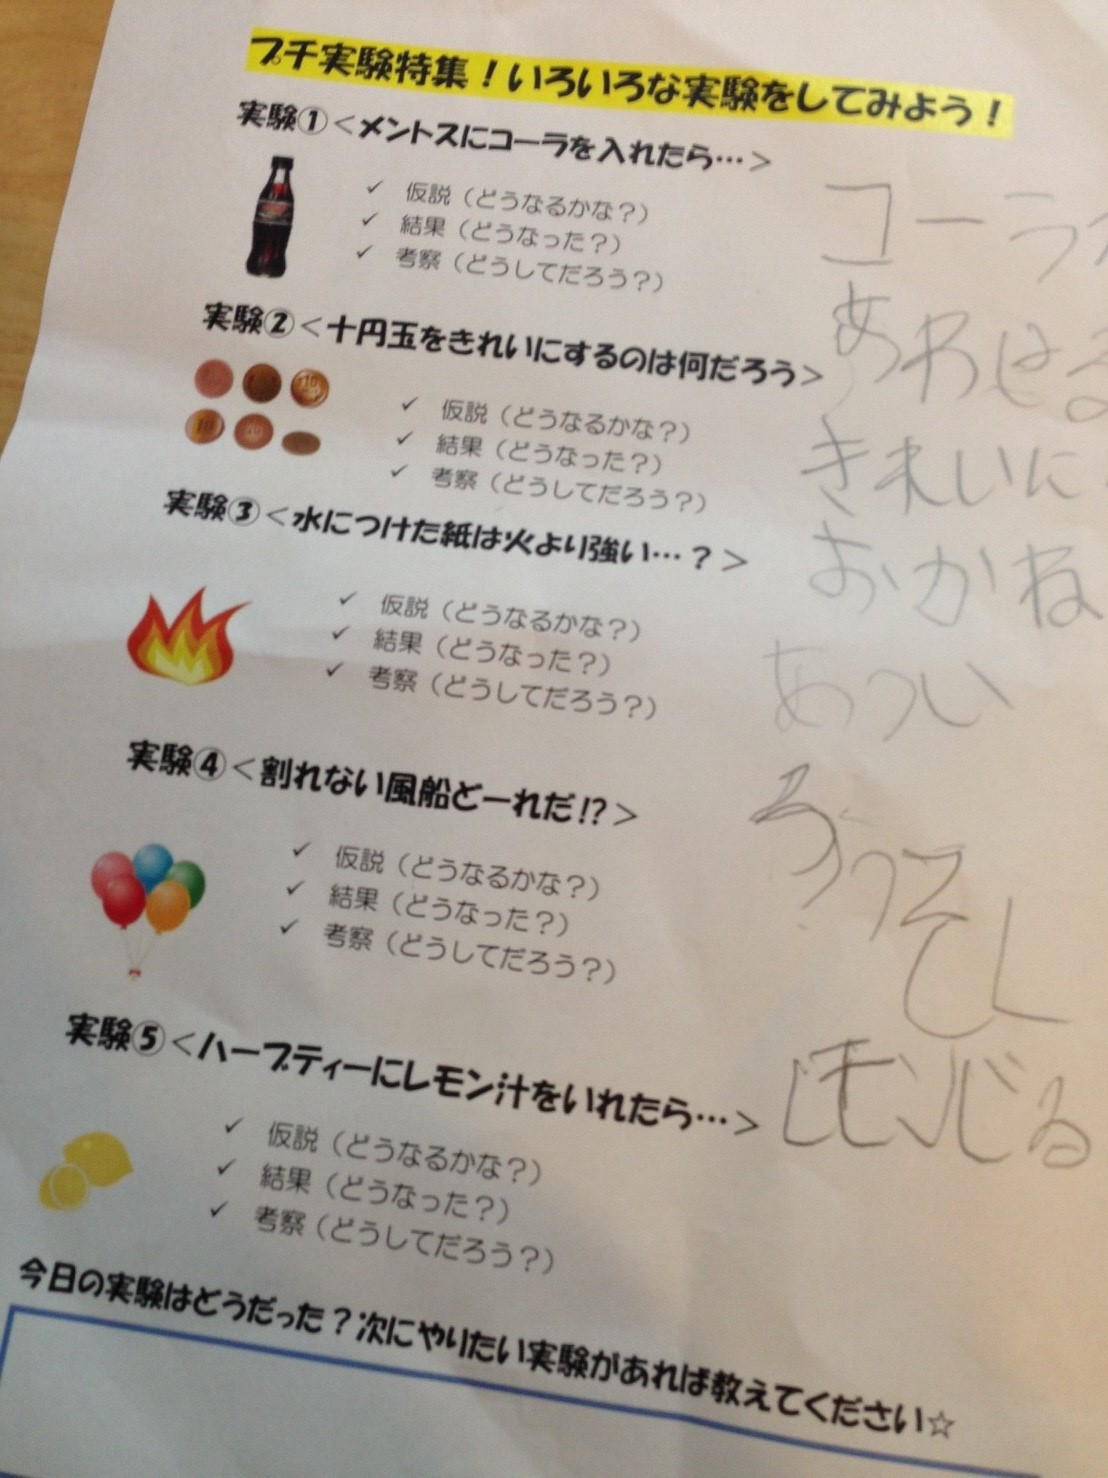 プチ実験特集！いろいろな実験をしてみよう！
実験①＜メントスにコーラを入れたら…＞
✓ 仮説（どうなるかな？）
✓ 結果（どうなった？）
✓ 考察（どうしてだろう？）
コーラ
あわせる
実験②＜十円玉をきれいにするのは何だろう＞
✓ 仮説（どうなるかな？）
✓ 結果（どうなった？）
✓ 考察（どうしてだろう？）
きれいに
おかね
実験③＜水につけた紙は火より強い…？＞
✓ 仮説（どうなるかな？）
✓ 結果（どうなった？）
✓ 考察（どうしてだろう？）
あつい
実験④＜割れない風船どーれだ!?＞
✓ 仮説（どうなるかな？）
✓ 結果（どうなった？）
✓ 考察（どうしてだろう？）
実験⑤＜ハーブティーにレモン汁をいれたら…＞
✓ 仮説（どうなるかな？）
✓ 結果（どうなった？）
✓ 考察（どうしてだろう？）
今日の実験はどうだった？次にやりたい実験があれば教えてください☆